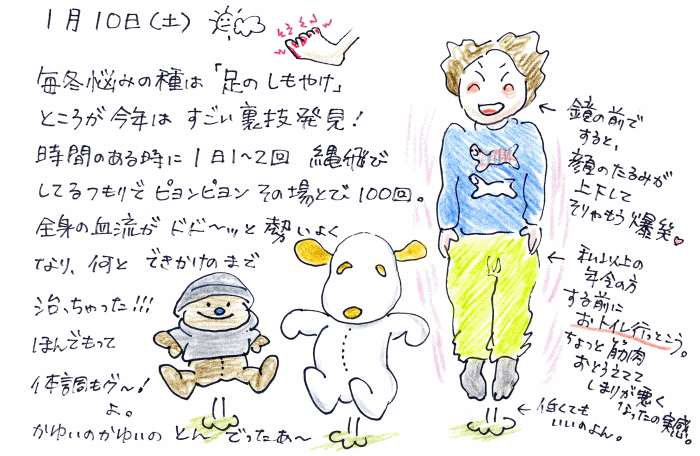 1月10日(土)
毎冬悩みの種は「足のしもやけ」
ところが今年は すごい裏技発見!
時間のある時に 1日1〜2回 縄飛び
してるつもりで ピョンピョン その場とび 100回。
全身の血流が ドド〜ッと 勢いよく
なり、何と できかけのまで
治っちゃった!!!
ほんでもって
体調もグ〜!
よ。
かゆいのかゆいの とんでったあ〜
鏡の前で
すると、
顔のたるみが
上下して
そりゃもう爆笑♥
私以上の
年令の方
する前に
おトイレ行っとこう。
ちょっと筋肉
おとろえてて
しまりが悪く
なったの実感。
低くても
いいのよん。